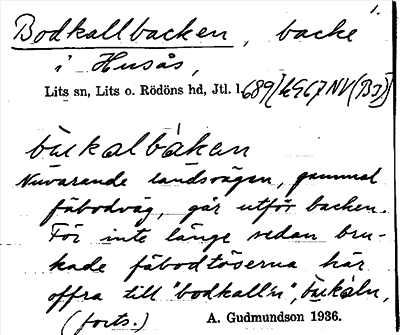 1.
Bodkallbacken, backe
i Husås,
Lits sn, Lits o. Rödöns hd, Jtl. l.
bükalbákan
Nuvarande landsvägen, gammal
fäbodväg, går utför backen.
För inte länge sedan bru-
kade fäbodtöserna här
offra till "bodkall'n", bükaln,
(forts.) A. Gudmundson 1936.